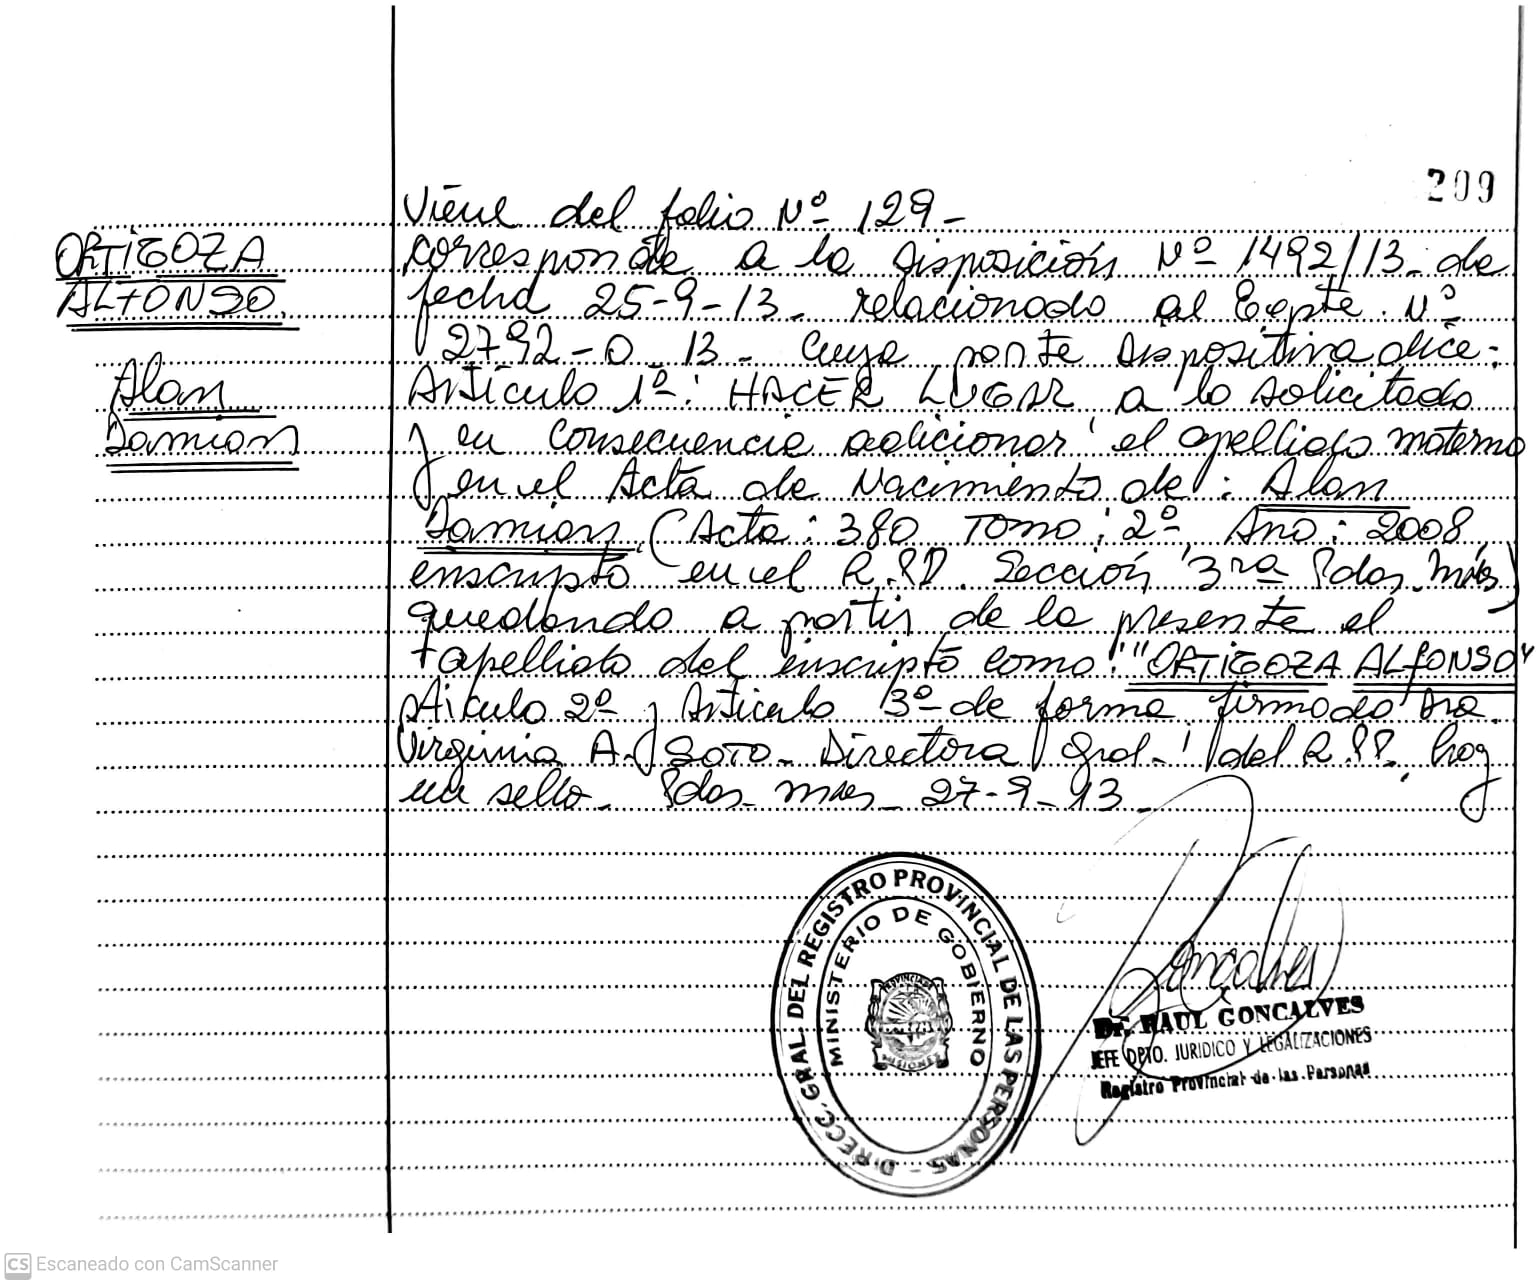 209
ORTIGOZA
ALFONSO.
Alan
Damian
Viene del folio Nº 129-
corresponde a la disposición Nº 1492/13- de
fecha 25-9-13- relacionado al Expte. Nº
2792-O-13- cuya parte dispositiva dice:
Artículo 1º: HACER LUGAR a lo solicitado
y en consecuencia adicionar el apellido materno
en el Acta de Nacimiento de: Alan
Damian. (Acta: 380 Tomo: 2º Año: 2008
inscripto en el R.P.P. Sección 3ra Pdas. Mnes)
quedando a partir de la presente el
apellido del inscripto como: "ORTIGOZA ALFONSO"
Artículo 2º y Artículo 3º de forma firmado Dra.
Virginia A. SOTO- Directora Gral. del R.P.P. hay
un sello- Pdas. Mnes- 27-9-13-
DIRECC. GRAL. DEL REGISTRO PROVINCIAL DE LAS PERSONAS -
MINISTERIO DE GOBIERNO
PROVINCIA DE
MISIONES
Goncalves
Dr. RAUL GONCALVES
JEFE DPTO. JURIDICO Y LEGALIZACIONES
Registro Provincial de las Personas
CS Escaneado con CamScanner